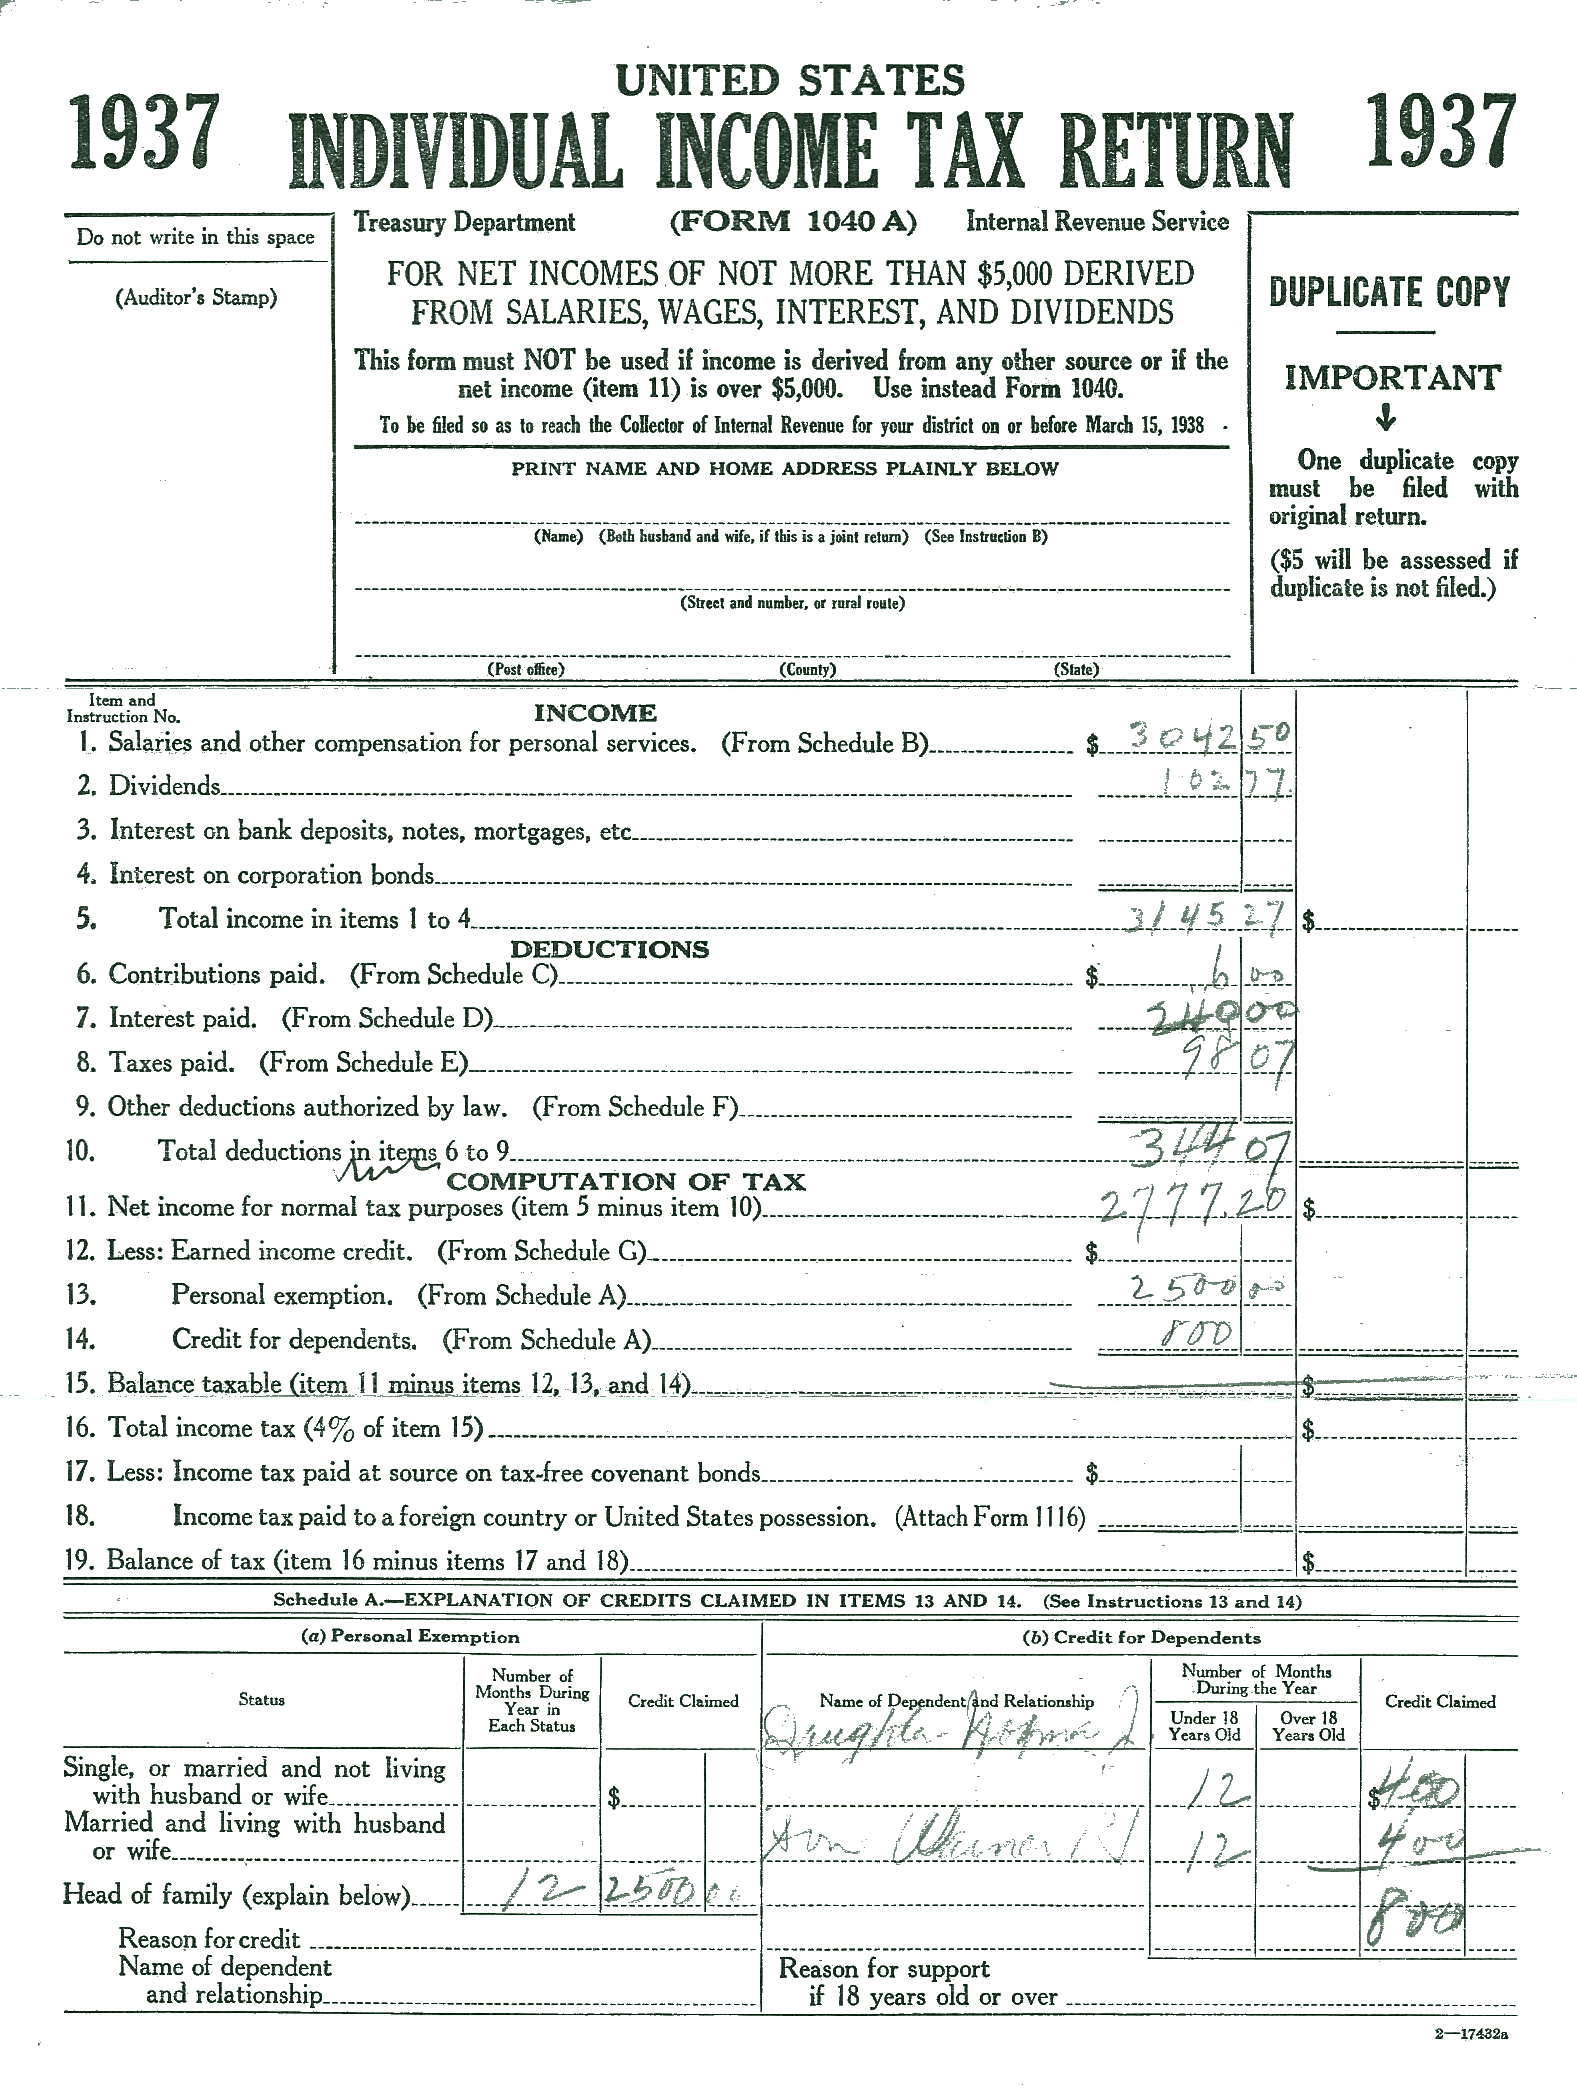 UNITED STATES
1937 INDIVIDUAL INCOME TAX RETURN 1937
Do not write in this space
(Auditor's Stamp)
Treasury Department (FORM 1040 A) Internal Revenue Service
FOR NET INCOMES OF NOT MORE THAN $5,000 DERIVED
FROM SALARIES, WAGES, INTEREST, AND DIVIDENDS
This form must NOT be used if income is derived from any other source or if the
net income (item 11) is over $5,000. Use instead Form 1040.
To be filed so as to reach the Collector of Internal Revenue for your district on or before March 15, 1938
PRINT NAME AND HOME ADDRESS PLAINLY BELOW
(Name) (Both husband and wife, if this is a joint return) (See Instruction B)
(Street and number, or rural route)
(Post office) (County) (State)
DUPLICATE COPY
IMPORTANT
One duplicate copy
must be filed with
original return.
($5 will be assessed if
duplicate is not filed.)
Item and
Instruction No.
INCOME
1. Salaries and other compensation for personal services. (From Schedule B) $ 3042 50
2. Dividends 102 77
3. Interest on bank deposits, notes, mortgages, etc
4. Interest on corporation bonds
5. Total income in items 1 to 4 3145 27 $
DEDUCTIONS
6. Contributions paid. (From Schedule C) $ 6 00
7. Interest paid. (From Schedule D) 240 00
8. Taxes paid. (From Schedule E) 98 07
9. Other deductions authorized by law. (From Schedule F)
10. Total deductions in items 6 to 9 344 07
COMPUTATION OF TAX
11. Net income for normal tax purposes (item 5 minus item 10) 2777.20 $
12. Less: Earned income credit. (From Schedule G) $
13. Personal exemption. (From Schedule A) 2500 00
14. Credit for dependents. (From Schedule A) 800
15. Balance taxable (item 11 minus items 12, 13, and 14) $
16. Total income tax (4% of item 15) $
17. Less: Income tax paid at source on tax-free covenant bonds $
18. Income tax paid to a foreign country or United States possession. (Attach Form 1116)
19. Balance of tax (item 16 minus items 17 and 18) $
Schedule A.—EXPLANATION OF CREDITS CLAIMED IN ITEMS 13 AND 14. (See Instructions 13 and 14)
(a) Personal Exemption
Status
Number of
Months During
Year in
Each Status
Credit Claimed
Single, or married and not living
with husband or wife $
Married and living with husband
or wife
Head of family (explain below) 12 2500 00
Reason for credit
Name of dependent
and relationship
(b) Credit for Dependents
Name of Dependent and Relationship
Number of Months
During the Year
Under 18
Years Old
Over 18
Years Old
Credit Claimed
Daughter - Norma J
12 $ 400
Son 12 400
800
Reason for support
if 18 years old or over
2—17432a